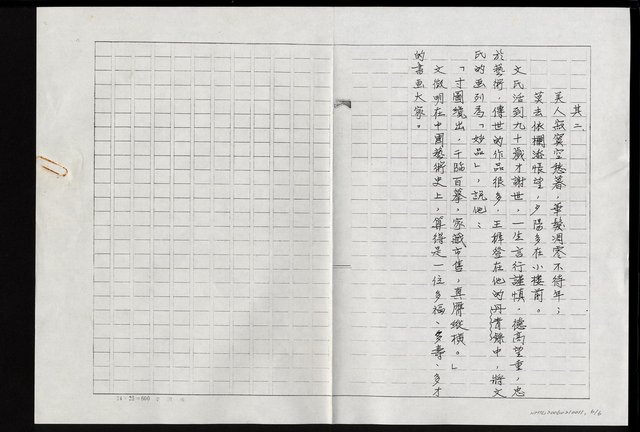 其二
美人寂寞空愁暮，華髮凋零不待年；
莫去依欄添悵望，夕陽多在小樓前。
文氏活到九十歲才謝世，一生言行謹慎，德高望重，忠
於藝術，傳世的作品很多，王穉登在他的丹青錄中，將文
氏的画列為「妙品」，説他：
「寸圖纔出，千臨百摹，家藏市售，真贋縱橫。」
文徵明在中國藝術史上，算得是一位多福、多壽、多才
的書画大家。
24×25=600